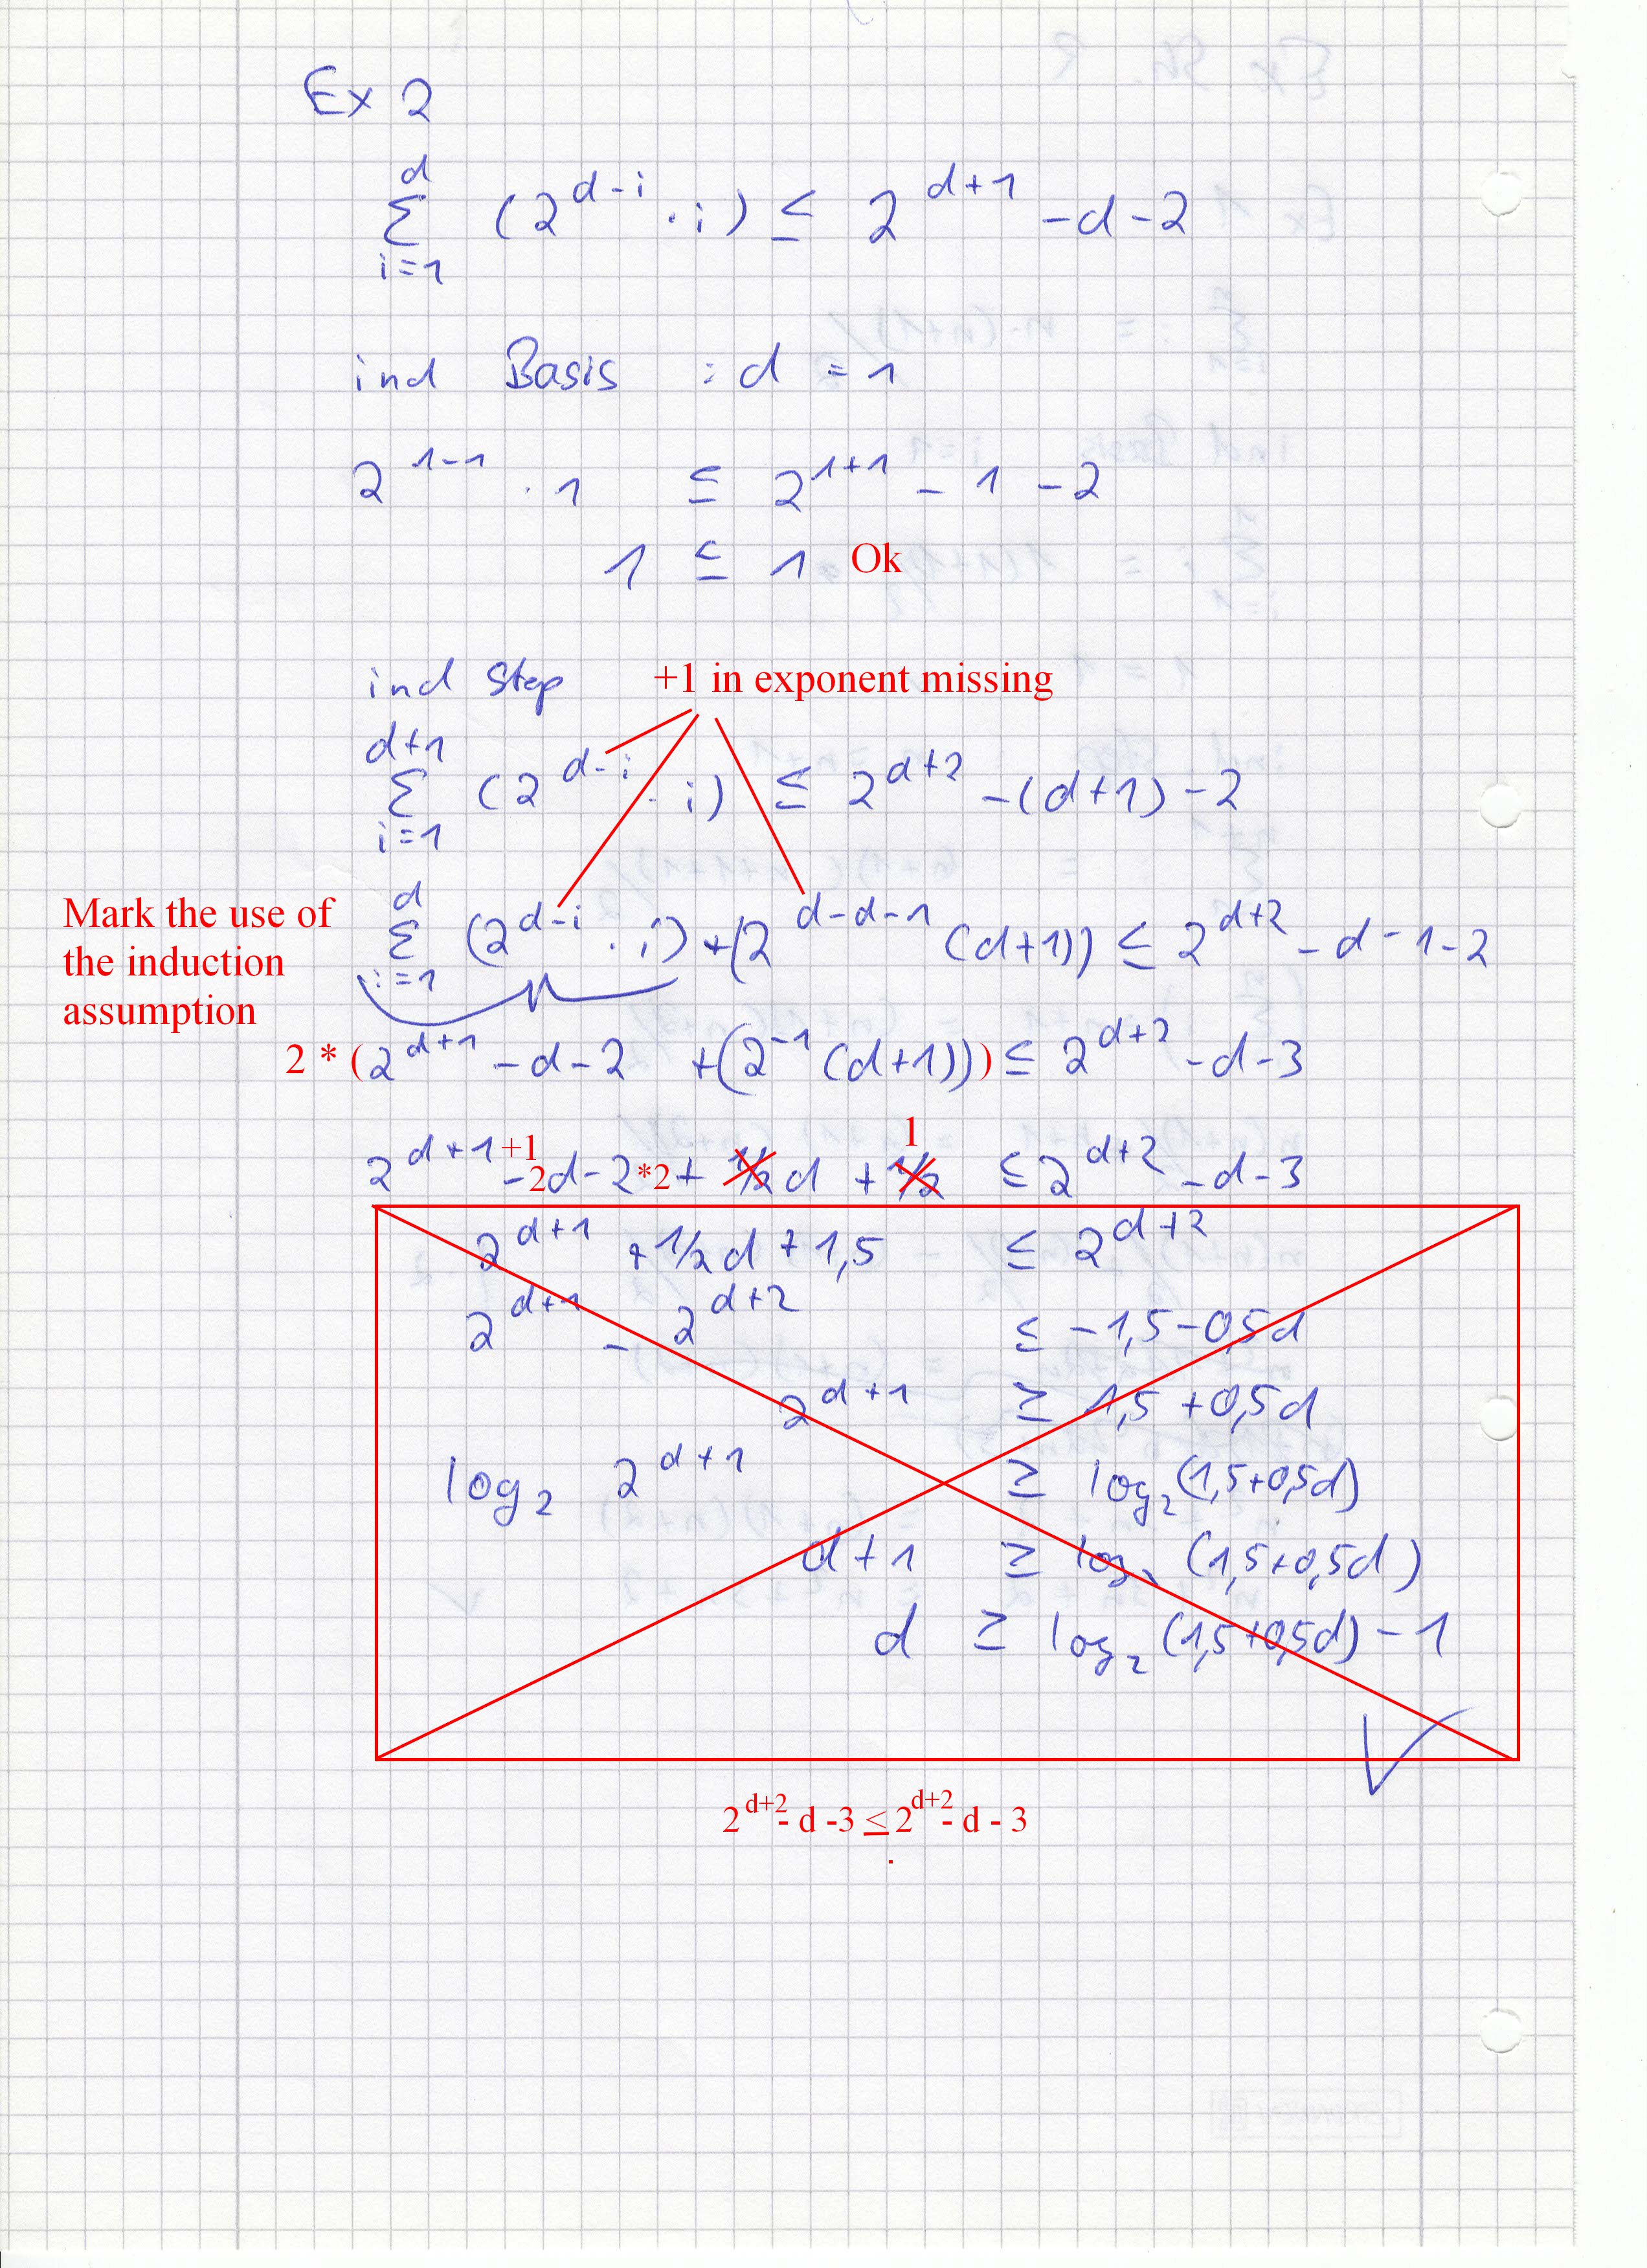 Ex 2
d
Σ (2^{d-i} · i) ≤ 2^{d+1} - d - 2
i=1
ind Basis : d = 1
2^{1-1} · 1 ≤ 2^{1+1} - 1 - 2
1 ≤ 1 Ok
ind Step +1 in exponent missing
d+1
Σ (2^{d-i} · i) ≤ 2^{d+2} - (d+1) - 2
i=1
Mark the use of
the induction
assumption
d
Σ (2^{d-i} · i) + (2^{d-d-1} (d+1)) ≤ 2^{d+2} - d - 1 - 2
i=1
2 * (2^{d+1} - d - 2 + (2^{-1} (d+1))) ≤ 2^{d+2} - d - 3
2^{d+1+1} - 2d - 2*2 + 1/2 d + 1/2 1 ≤ 2^{d+2} - d - 3
2^{d+1} + 1/2 d + 1,5 ≤ 2^{d+2}
2^{d+1} - 2^{d+2} ≤ -1,5 - 0,5d
2^{d+1} ≥ 1,5 + 0,5d
log_2 2^{d+1} ≥ log_2 (1,5+0,5d)
d+1 ≥ log_2 (1,5+0,5d)
d ≥ log_2 (1,5+0,5d) - 1
2^{d+2} - d - 3 ≤ 2^{d+2} - d - 3